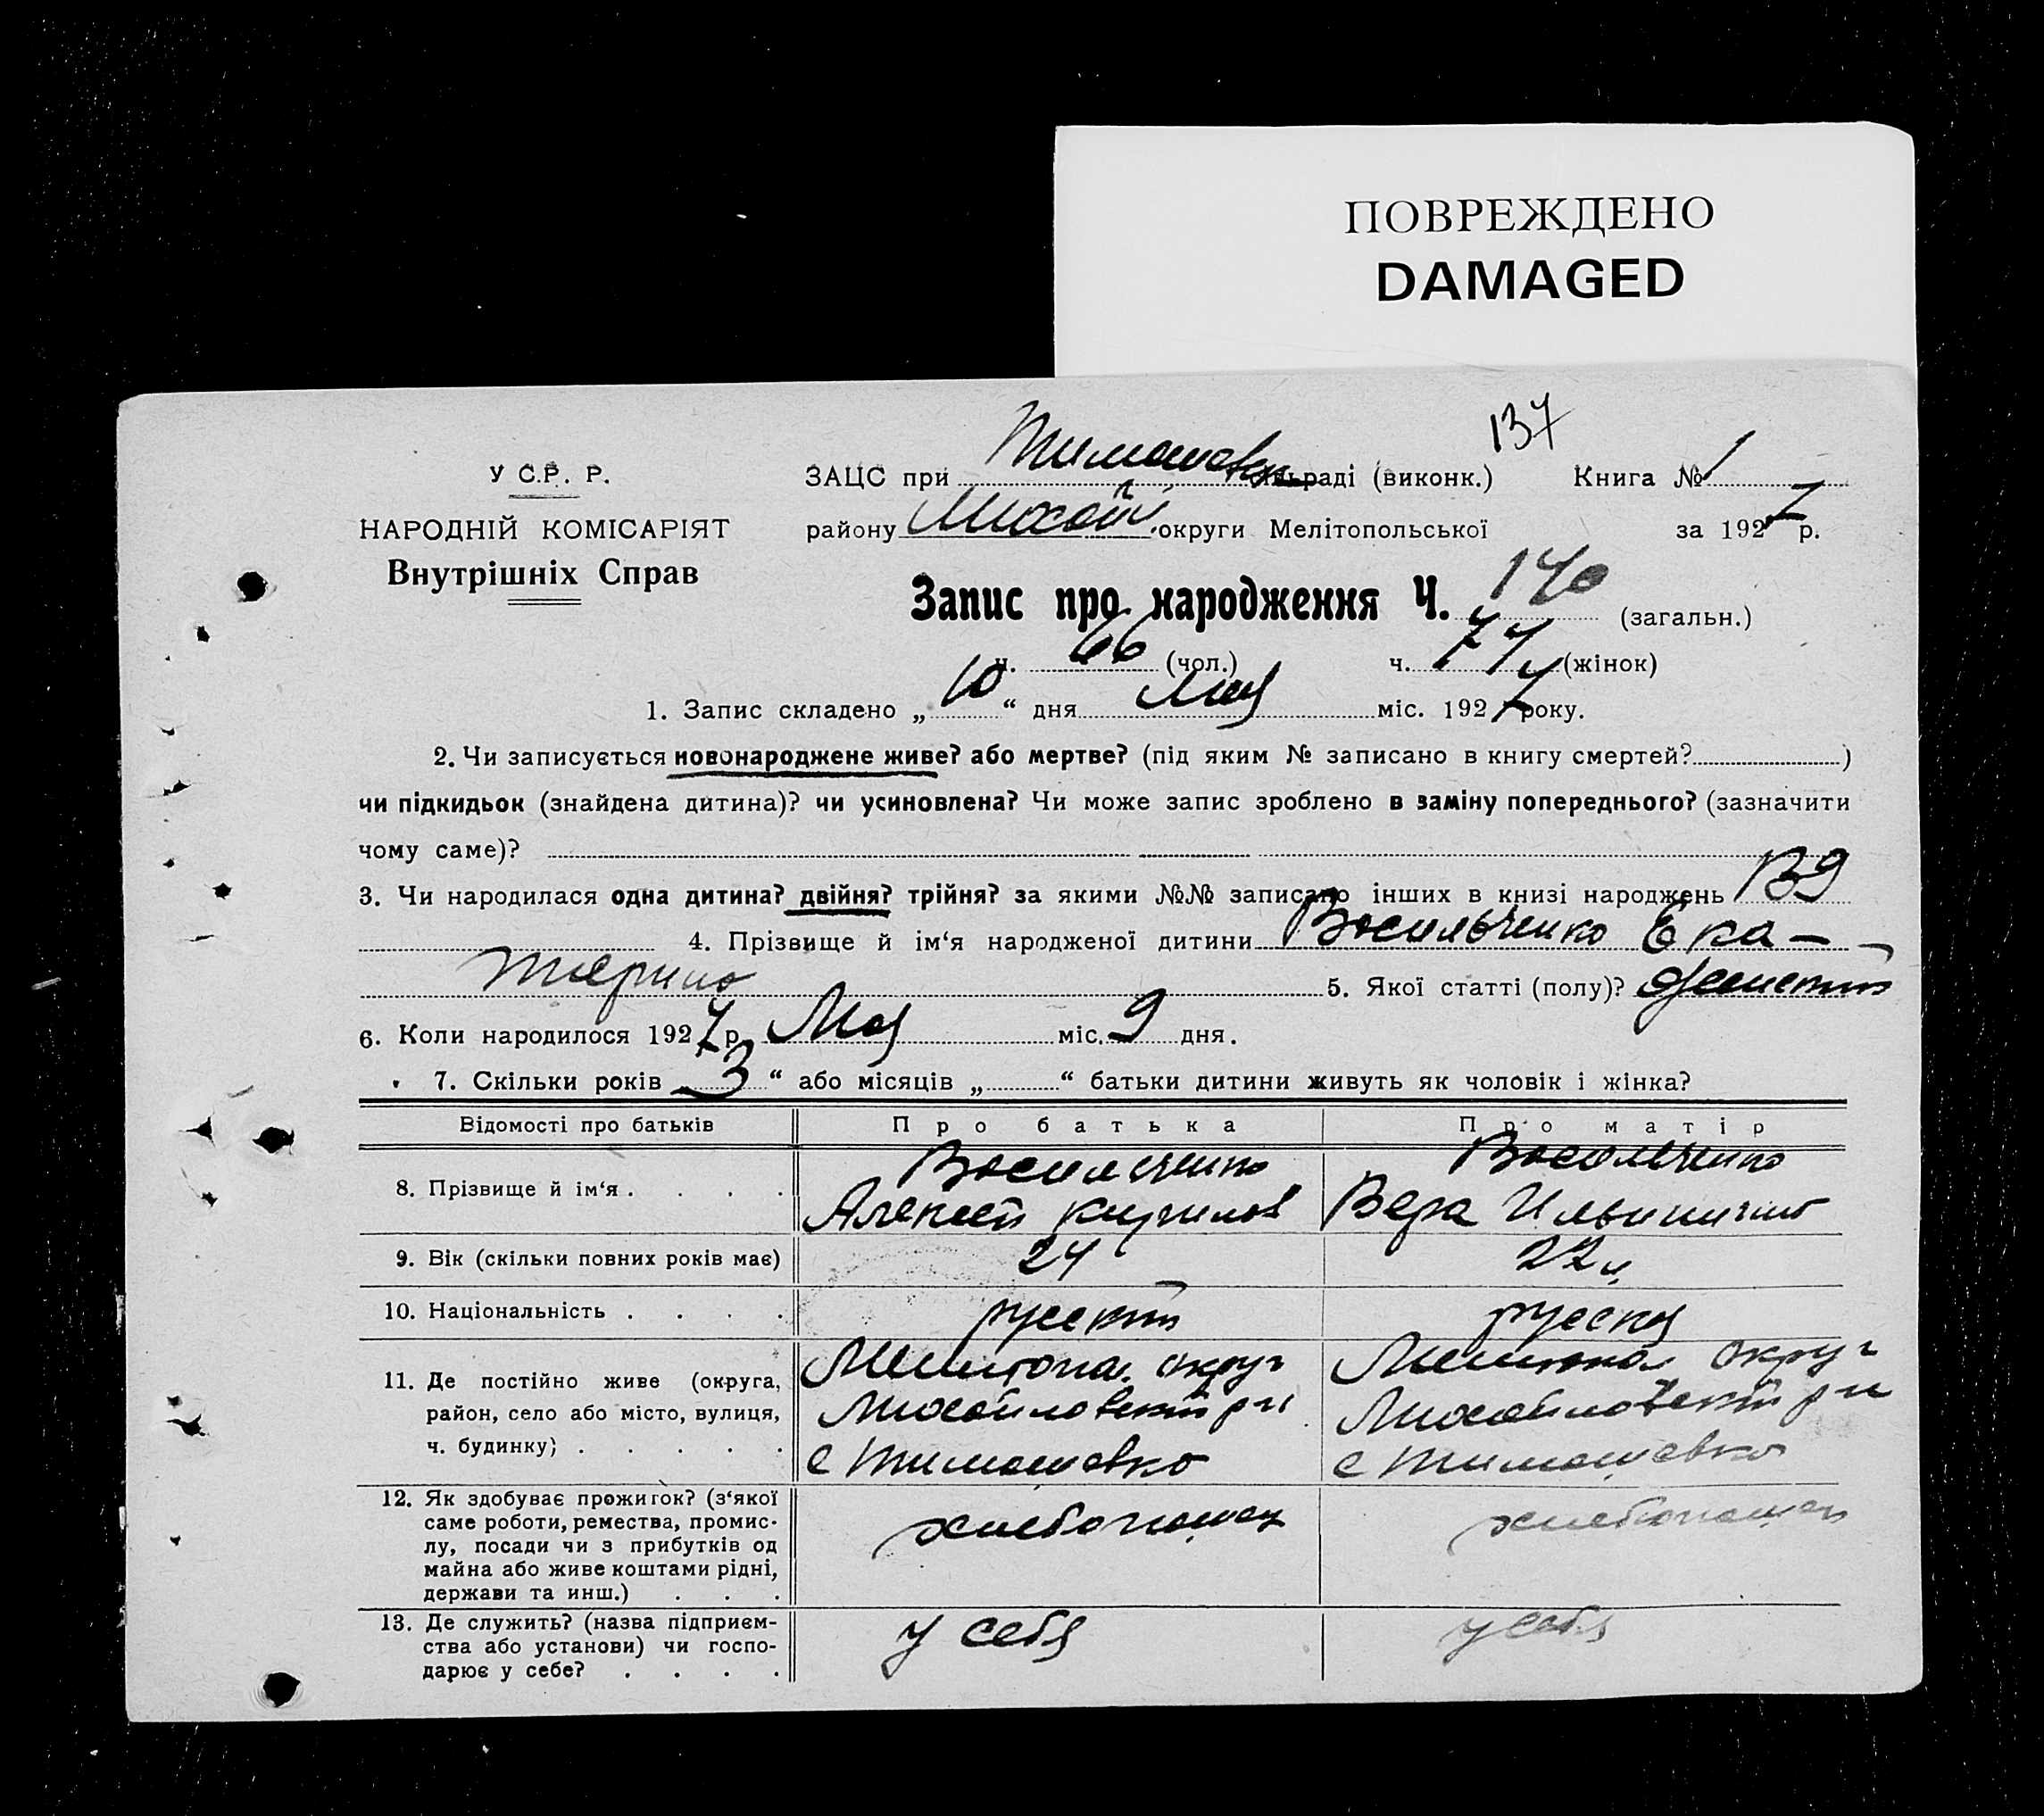 ПОВРЕЖДЕНО
DAMAGED
137
У С.Р. Р.
ЗАЦС при Тимашевск раді (виконк.) Книга № 1
НАРОДНІЙ КОМІСАРІЯТ
району Михай округи Мелітопольської за 1927 р.
Внутрішніх Справ
Запис про народження Ч. 140 (загальн.)
ч. 66 (чол.) ч. 74 (жінок)
1. Запис складено „ 10 “ дня Мая міс. 1927 року.
2. Чи записується новонароджене живе? або мертве? (під яким № записано в книгу смертей? )
чи підкидьок (знайдена дитина)? чи усиновлена? Чи може запис зроблено в заміну попереднього? (зазначити
чому саме)?
3. Чи народилася одна дитина? двійня? трійня? за якими №№ записано інших в книзі народжень 139
4. Прізвище й ім‘я народженої дитини Васильченко Ека-
терина 5. Якої статті (полу)? женский
6. Коли народилося 1927 р. Мая міс. 9 дня.
7. Скільки років „ 3 “ або місяців „ “ батьки дитини живуть як чоловік і жінка?
Відомості про батьків Про батька Про матір
8. Прізвище й ім‘я . . . . Васильченко Алексей Кирилов Васильченко Вера Ильинична
9. Вік (скільки повних років має) 24 22 л
10. Національність . . . . русский русская
11. Де постійно живе (округа, Мелитопол. округ Мелитопол округ
район, село або місто, вулиця, Михайловский р-н Михайловский р-н
ч. будинку) . . . . . с Тимашевка с Тимашевка
12. Як здобуває прожиток? (з‘якої
саме роботи, ремества, промис- хлебопашец хлебопашец
лу, посади чи з прибутків од
майна або живе коштами рідні,
держави та инш.) . . .
13. Де служить? (назва підприєм- у себя у себя
ства або установи) чи госпо-
дарює у себе? . . . .